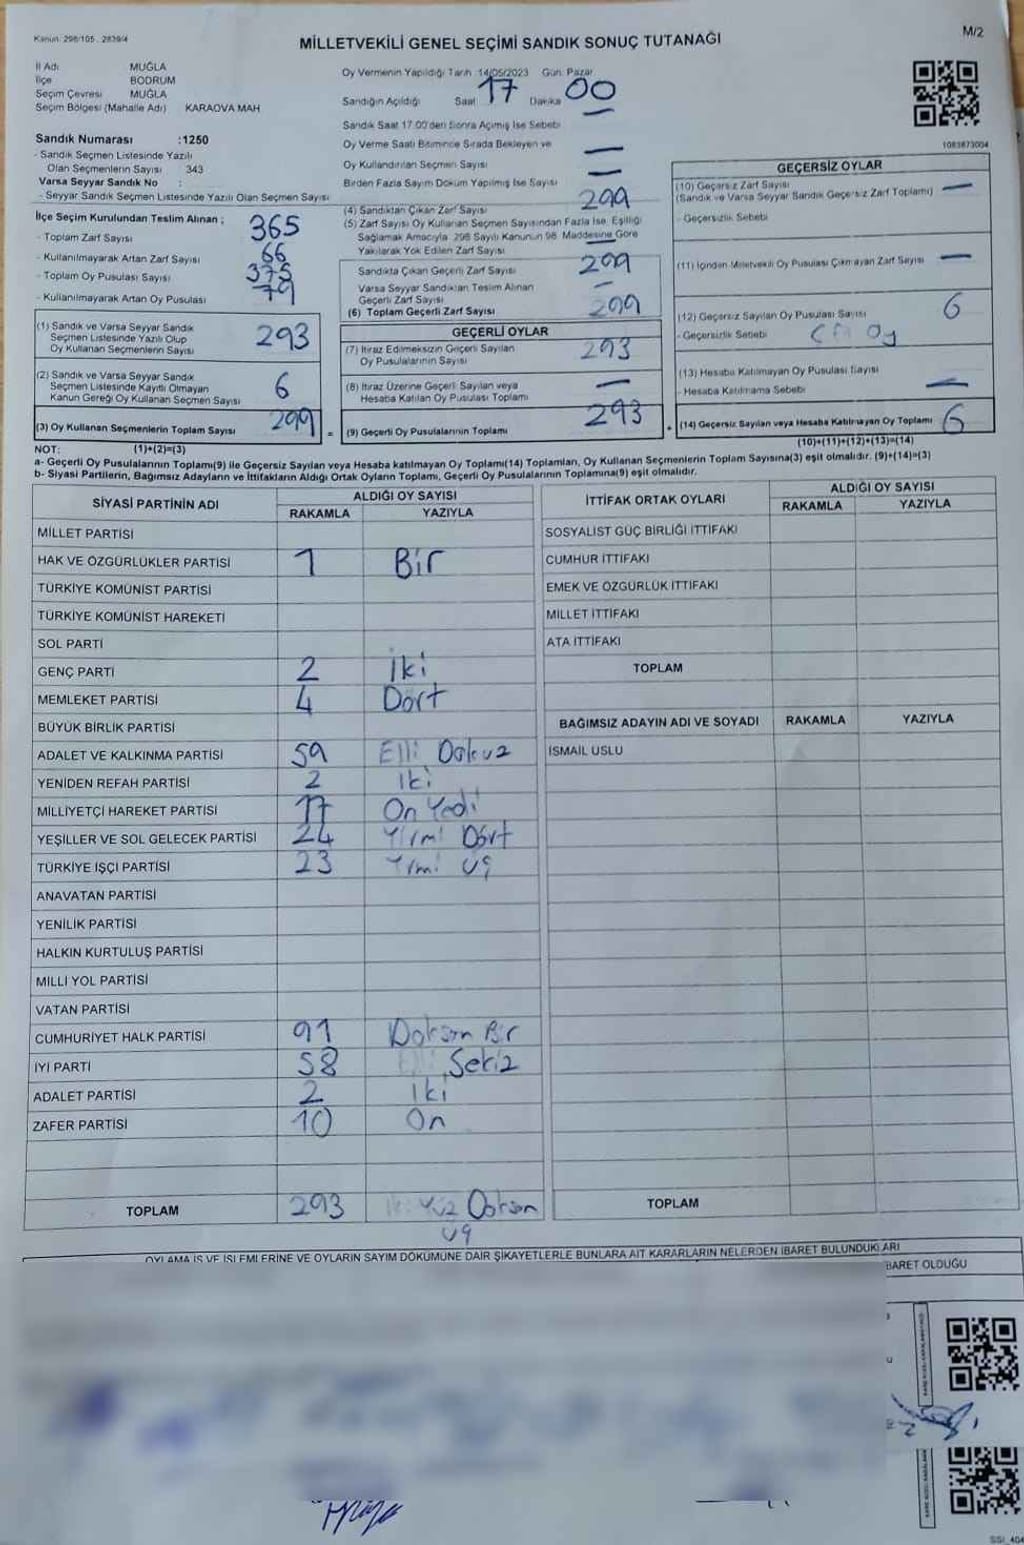 Kanun: 298/105, 2839/4
MİLLETVEKİLİ GENEL SEÇİMİ SANDIK SONUÇ TUTANAĞI
M/2
İl Adı MUĞLA
İlçe BODRUM
Seçim Çevresi MUĞLA
Seçim Bölgesi (Mahalle Adı) KARAOVA MAH
Sandık Numarası :1250
- Sandık Seçmen Listesinde Yazılı
Olan Seçmenlerin Sayısı 343
Varsa Seyyar Sandık No :
- Seyyar Sandık Seçmen Listesinde Yazılı Olan Seçmen Sayısı
Oy Vermenin Yapıldığı Tarih 14/05/2023 Gün: Pazar
Sandığın Açıldığı Saat 17 Dakika 00
Sandık Saat 17.00'den Sonra Açılmış İse Sebebi
Oy Verme Saati Bitiminde Sırada Bekleyen ve
Oy Kullandırılan Seçmen Sayısı —
Birden Fazla Sayım Döküm Yapılmış İse Sayısı —
1083873004
İlçe Seçim Kurulundan Teslim Alınan ;
- Toplam Zarf Sayısı 365
- Kullanılmayarak Artan Zarf Sayısı 66
- Toplam Oy Pusulası Sayısı 375
- Kullanılmayarak Artan Oy Pusulası 79
(1) Sandık ve Varsa Seyyar Sandık
Seçmen Listesinde Yazılı Olup
Oy Kullanan Seçmenlerin Sayısı 293
(2) Sandık ve Varsa Seyyar Sandık
Seçmen Listesinde Kayıtlı Olmayan
Kanun Gereği Oy Kullanan Seçmen Sayısı 6
(3) Oy Kullanan Seçmenlerin Toplam Sayısı 299
(4) Sandıktan Çıkan Zarf Sayısı 299
(5) Zarf Sayısı Oy Kullanan Seçmen Sayısından Fazla İse, Eşitliği
Sağlamak Amacıyla 298 Sayılı Kanunun 98. Maddesine Göre
Yakılarak Yok Edilen Zarf Sayısı —
Sandıkta Çıkan Geçerli Zarf Sayısı 299
Varsa Seyyar Sandıktan Teslim Alınan
Geçerli Zarf Sayısı —
(6) Toplam Geçerli Zarf Sayısı 299
GEÇERLİ OYLAR
(7) İtiraz Edilmeksizin Geçerli Sayılan
Oy Pusulalarının Sayısı 293
(8) İtiraz Üzerine Geçerli Sayılan veya
Hesaba Katılan Oy Pusulası Toplamı —
(9) Geçerli Oy Pusulalarının Toplamı 293
GEÇERSİZ OYLAR
(10) Geçersiz Zarf Sayısı —
(Sandık ve Varsa Seyyar Sandık Geçersiz Zarf Toplamı)
- Geçersizlik Sebebi
(11) İçinden Milletvekili Oy Pusulası Çıkmayan Zarf Sayısı —
(12) Geçersiz Sayılan Oy Pusulası Sayısı 6
- Geçersizlik Sebebi Oy
(13) Hesaba Katılmayan Oy Pusulası Sayısı
- Hesaba Katılmama Sebebi —
(14) Geçersiz Sayılan veya Hesaba Katılmayan Oy Toplamı 6
NOT: (1)+(2)=(3)
(10)+(11)+(12)+(13)=(14)
a- Geçerli Oy Pusulalarının Toplamı(9) ile Geçersiz Sayılan veya Hesaba katılmayan Oy Toplamı(14) Toplamları, Oy Kullanan Seçmenlerin Toplam Sayısına(3) eşit olmalıdır. (9)+(14)=(3)
b- Siyasi Partilerin, Bağımsız Adayların ve İttifakların Aldığı Ortak Oyların Toplamı, Geçerli Oy Pusulalarının Toplamına(9) eşit olmalıdır.
SİYASİ PARTİNİN ADI ALDIĞI OY SAYISI
RAKAMLA YAZIYLA
MİLLET PARTİSİ
HAK VE ÖZGÜRLÜKLER PARTİSİ 1 Bir
TÜRKİYE KOMÜNİST PARTİSİ
TÜRKİYE KOMÜNİST HAREKETİ
SOL PARTİ
GENÇ PARTİ 2 İki
MEMLEKET PARTİSİ 4 Dört
BÜYÜK BİRLİK PARTİSİ
ADALET VE KALKINMA PARTİSİ 59 Elli Dokuz
YENİDEN REFAH PARTİSİ 2 İki
MİLLİYETÇİ HAREKET PARTİSİ 17 On Yedi
YEŞİLLER VE SOL GELECEK PARTİSİ 24 Yirmi Dört
TÜRKİYE İŞÇİ PARTİSİ 23 Yirmi Üç
ANAVATAN PARTİSİ
YENİLİK PARTİSİ
HALKIN KURTULUŞ PARTİSİ
MİLLİ YOL PARTİSİ
VATAN PARTİSİ
CUMHURİYET HALK PARTİSİ 91 Doksan Bir
İYİ PARTİ 58 Elli Sekiz
ADALET PARTİSİ 2 İki
ZAFER PARTİSİ 10 On
TOPLAM 293 İki Yüz Doksan
Üç
İTTİFAK ORTAK OYLARI ALDIĞI OY SAYISI
RAKAMLA YAZIYLA
SOSYALİST GÜÇ BİRLİĞİ İTTİFAKI
CUMHUR İTTİFAKI
EMEK VE ÖZGÜRLÜK İTTİFAKI
MİLLET İTTİFAKI
ATA İTTİFAKI
TOPLAM
BAĞIMSIZ ADAYIN ADI VE SOYADI RAKAMLA YAZIYLA
İSMAİL USLU
TOPLAM
OYLAMA İŞ VE İŞLEMLERİNE VE OYLARIN SAYIM DÖKÜMÜNE DAİR ŞİKAYETLERLE BUNLARA AİT KARARLARIN NELERDEN İBARET BULUNDUKLARI
BARET OLDUĞU